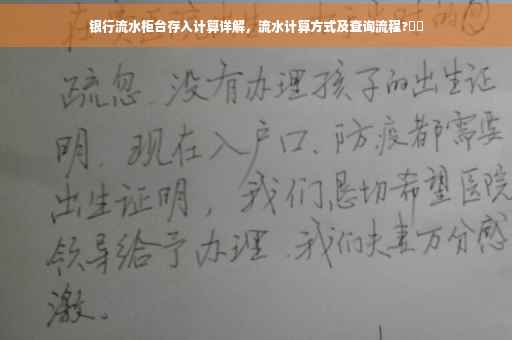 银行流水柜台存入计算详解，流水计算方式及查询流程?
疏忽、没有办理孩子的出生证
明、现在入户口、防疫都需要
出生证明，我们恳切希望医院
领导给予办理、我们夫妻万分感
激。